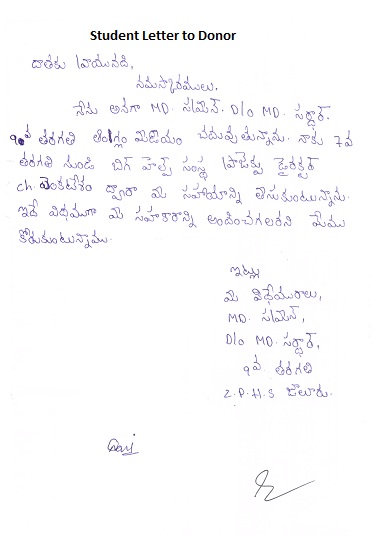 Student Letter to Donor
దాతకు వ్రాయునది,
నమస్కారములు.
నేను అనగా MD. D/o MD. సర్దార్.
9వ తరగతి మీడియం చదువుతున్నాను. నాకు 7వ
తరగతి నుండి బిగ్ హెల్ప్ సంస్థ ప్రాజెక్టు డైరెక్టర్
ch వెంకటేశం ద్వారా మీ సహాయాన్ని తీసుకుంటున్నాను.
ఇదే విధముగా మీ సహకారాన్ని అందించగలరని మేము
కోరుకుంటున్నాము.
ఇట్లు
మీ విధేయురాలు,
MD.
D/o MD. సర్దార్,
9వ తరగతి
Z.P.H.S